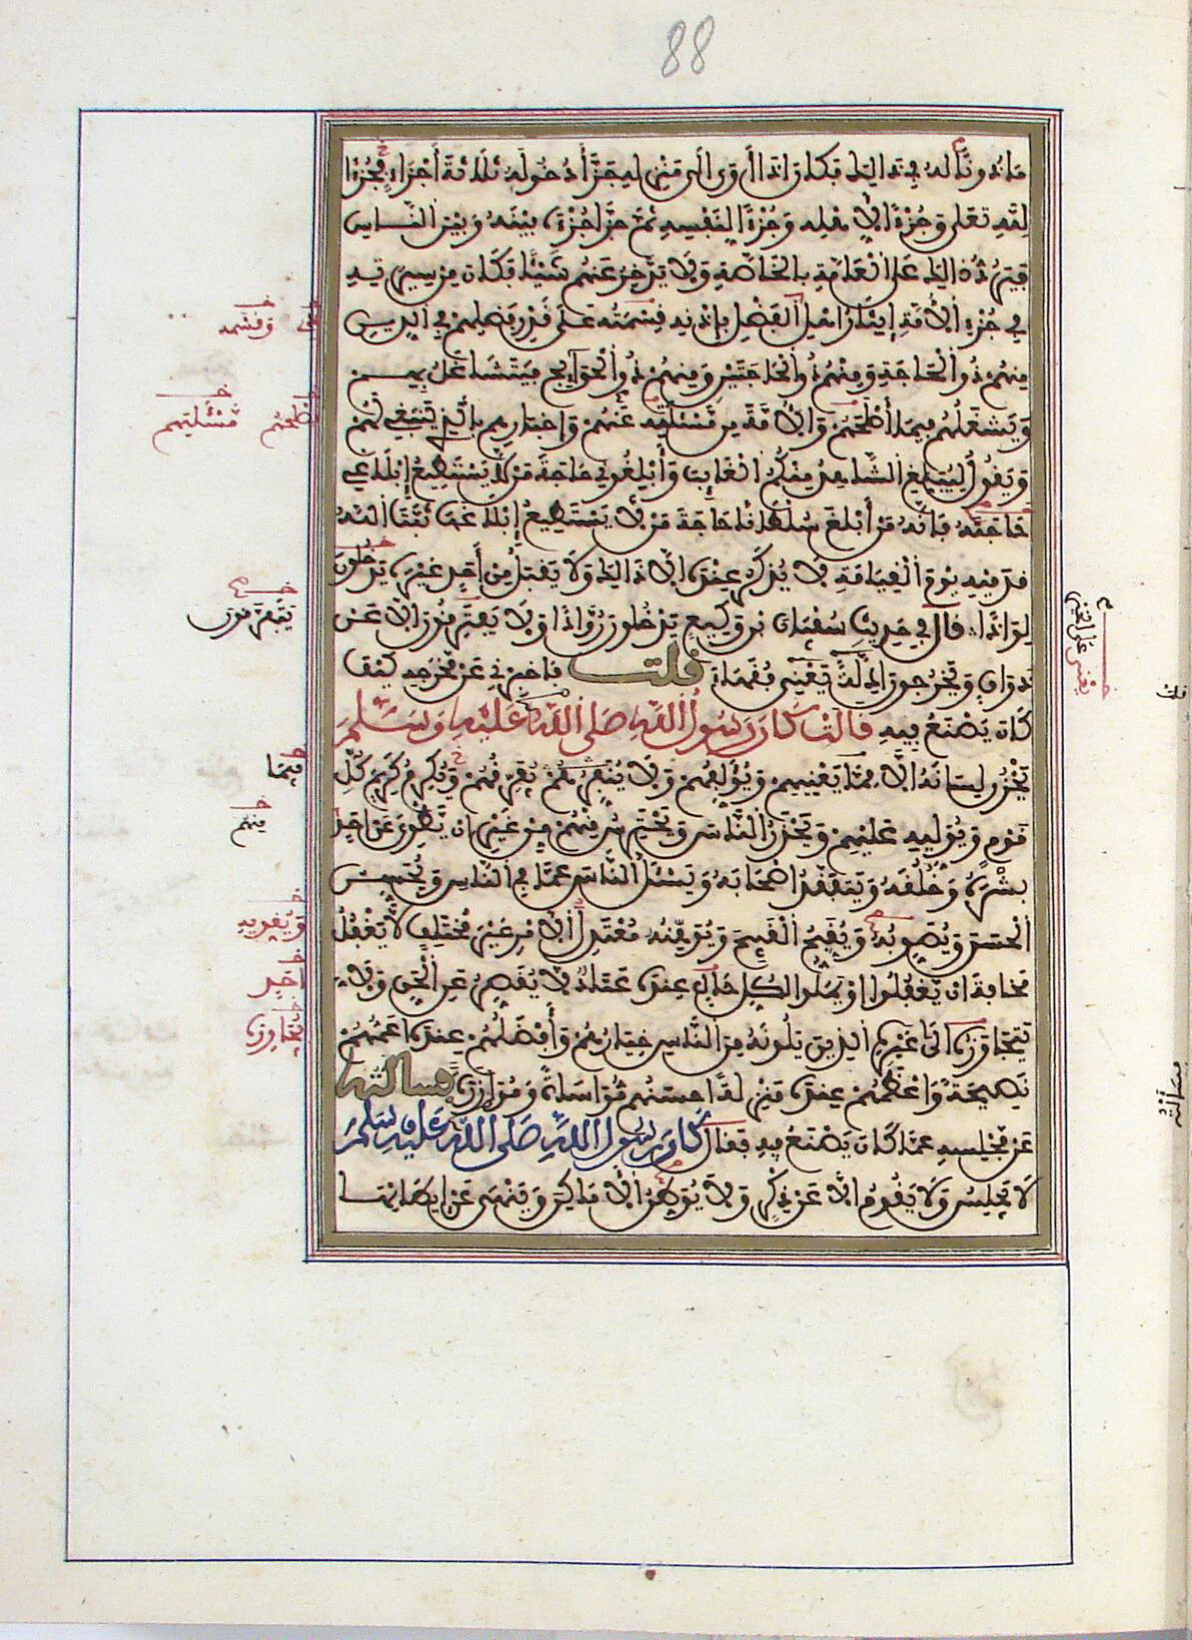 88
مأذونا له في ذلك فكان إذا أوى إلى منزله جزأ دخوله ثلاثة أجزاء فجزءا
لله تعلى وجزءا لأهله وجزءا لنفسه ثم جزأ جزءه بينه وبين الناس
فيرد ذلك على العامة بالخاصة ولا يدخر عنهم شيئا فكان من سيرته
في جزء الأمة إيثار أهل الفضل بإذنه قسمته على قدر فضلهم في الدين
منهم ذو الحاجة ومنهم ذو الحاجتين ومنهم ذو الحوائج فيتشاغل بهم
ويشغلهم بما أصلحهم والأمة من مسئلته عنهم وإخبارهم بالذي ينبغي لهم
ويقول ليبلغ الشاهد منكم الغائب وأبلغوني حاجة من لا يستطيع إبلاغي
حاجته فإنه من أبلغ سلطانا حاجة من لا يستطيع إبلاغها ثبت الله
قدميه يوم القيامة لا يذكر عنده إلا ذلك ولا يقبل من أحد غيره يدخلون
روادا قال في حديث سفيان بن وكيع يدخلون روادا ولا يفترقون إلا عن
ذواق ويخرجون أدلة يعني فقهاء قلت فأخبرني عن مخرجه كيف
كان يصنع فيه قال كان رسول الله صلى الله عليه وسلم
يخزن لسانه إلا مما يعنيهم ويؤلفهم ولا ينفرهم ويكرم كريم كل
قوم ويوليه عليهم ويحذر الناس ويحترس منهم من غير أن يطوي عن أحد
بشره وخلقه ويتفقد أصحابه ويسئل الناس عما في الناس ويحسن
الحسن ويصوبه ويقبح القبيح ويوهنه معتدل الأمر غير مختلف لا يغفل
مخافة أن يغفلوا أو يملوا لكل حال عنده عتاد لا يقصر عن الحق ولا
يتجاوزه إلى غيره الذين يلونه من الناس خيارهم وأفضلهم عنده أعمهم
نصيحة وأعظمهم عنده منزلة أحسنهم مواساة وموازرة فسألته
عن مجلسه عما كان يصنع فيه فقال كان رسول الله صلى الله عليه وسلم
لا يجلس ولا يقوم إلا عن ذكر ولا يوطن الأماكن وينهى عن إيطانها
وقسمه
مسئلتهم
فيما
منهم